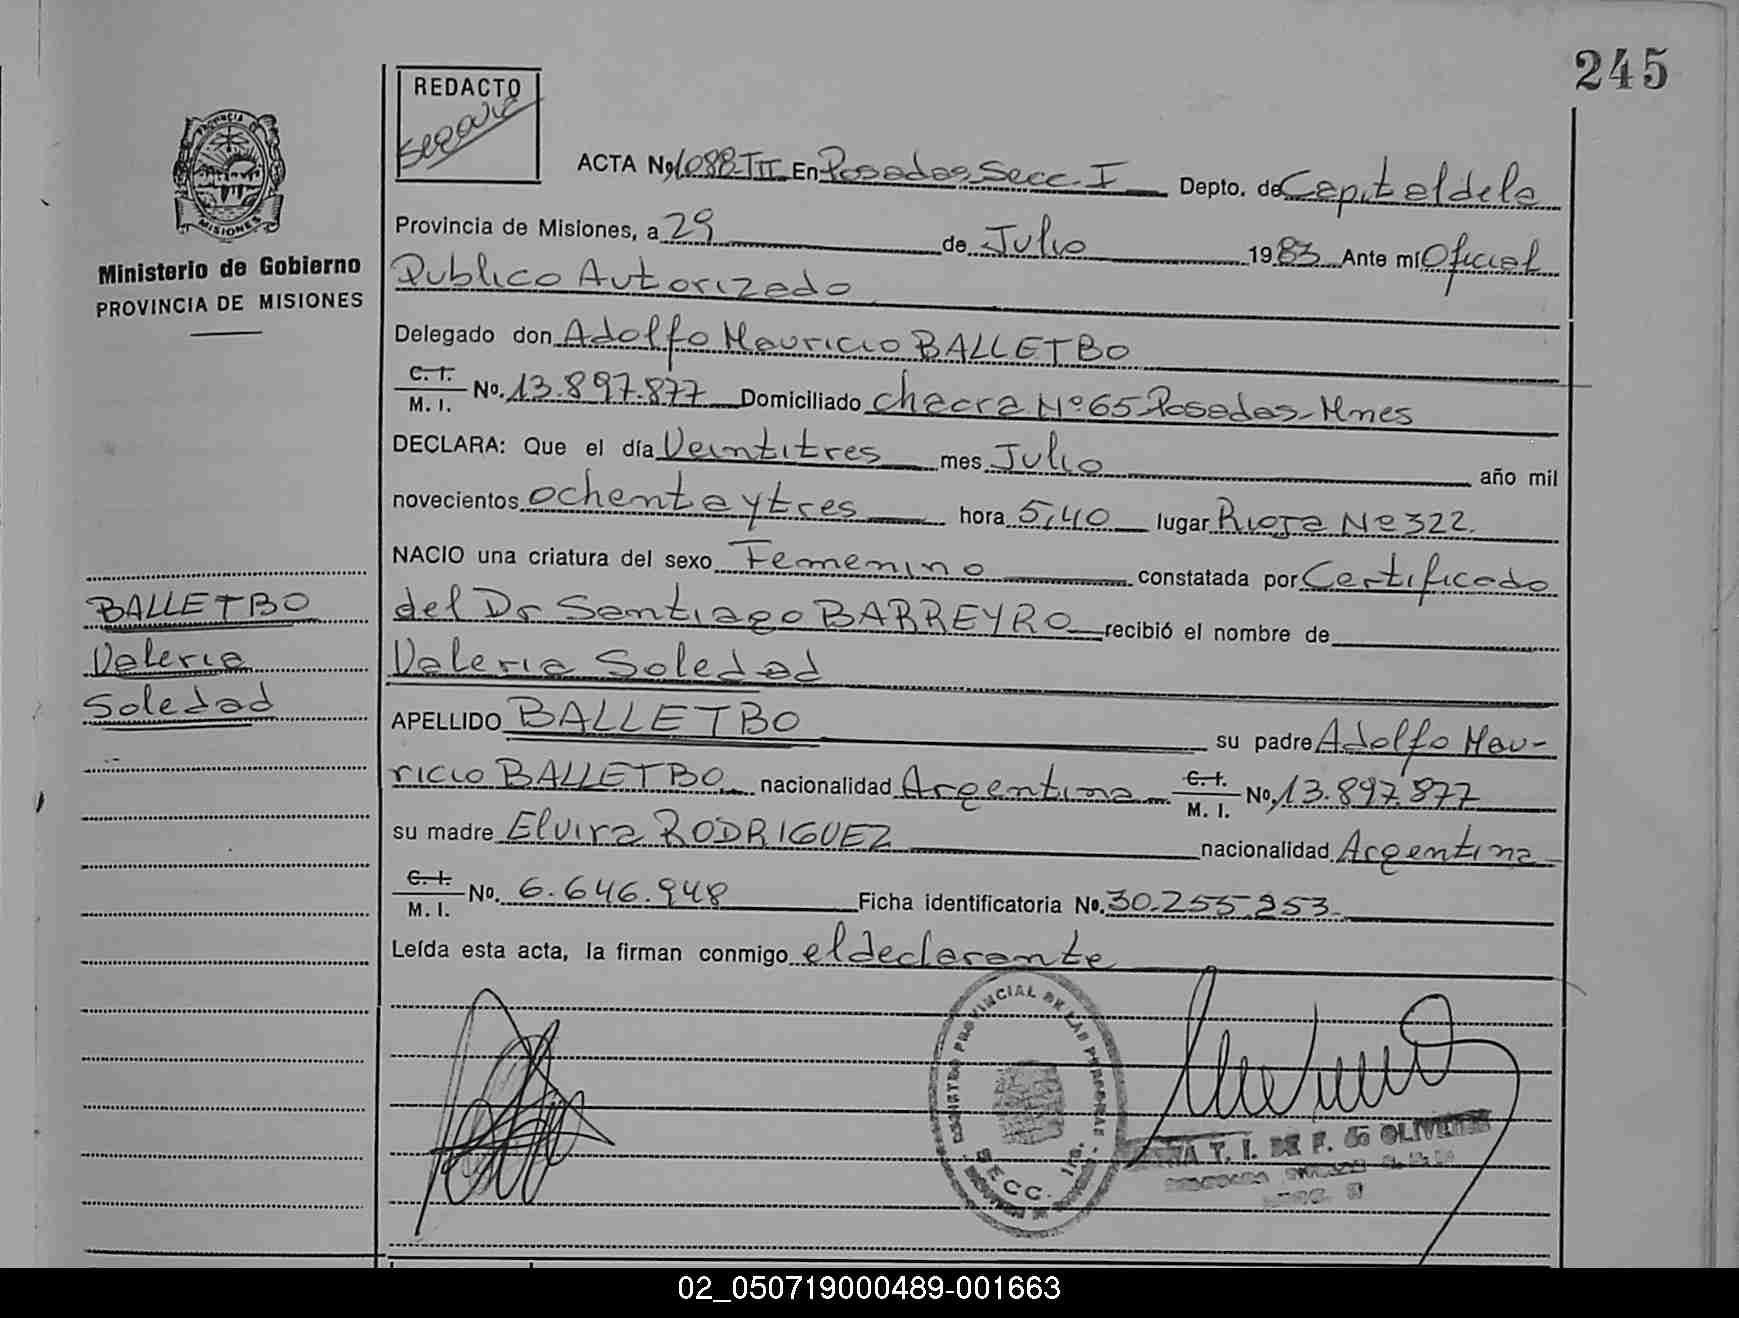 245
REDACTO
ACTA No 1.088-TII En Posadas Secc. I Depto. de Capital de la
Provincia de Misiones, a 29 de Julio 1983 Ante mí Oficial
Publico Autorizado
Delegado don Adolfo Mauricio BALLETBO
C. I.
M. I. No. 13.897.877 Domiciliado chacra Nº 65 Posadas-Mnes
DECLARA: Que el día Veintitres mes Julio año mil
novecientos ochenta y tres hora 5,40 lugar Rioja Nº 322.
NACIO una criatura del sexo Femenino constatada por Certificado
del Dr Santiago BARREYRO recibió el nombre de
Valeria Soledad
APELLIDO BALLETBO su padre Adolfo Mau-
ricio BALLETBO nacionalidad Argentina C. I. M. I. No. 13.897.877
su madre Elvira RODRIGUEZ nacionalidad Argentina
C. I.
M. I. No. 6.646.948 Ficha identificatoria No. 30.255.253.
Leída esta acta, la firman conmigo el declarante
PROVINCIA DE
MISIONES
Ministerio de Gobierno
PROVINCIA DE MISIONES
BALLETBO
Valeria
Soledad
REGISTRO PROVINCIAL DE LAS PERSONAS
SECC. 1ra.
T. I. DE F. de OLIVEIRA
02_050719000489-001663